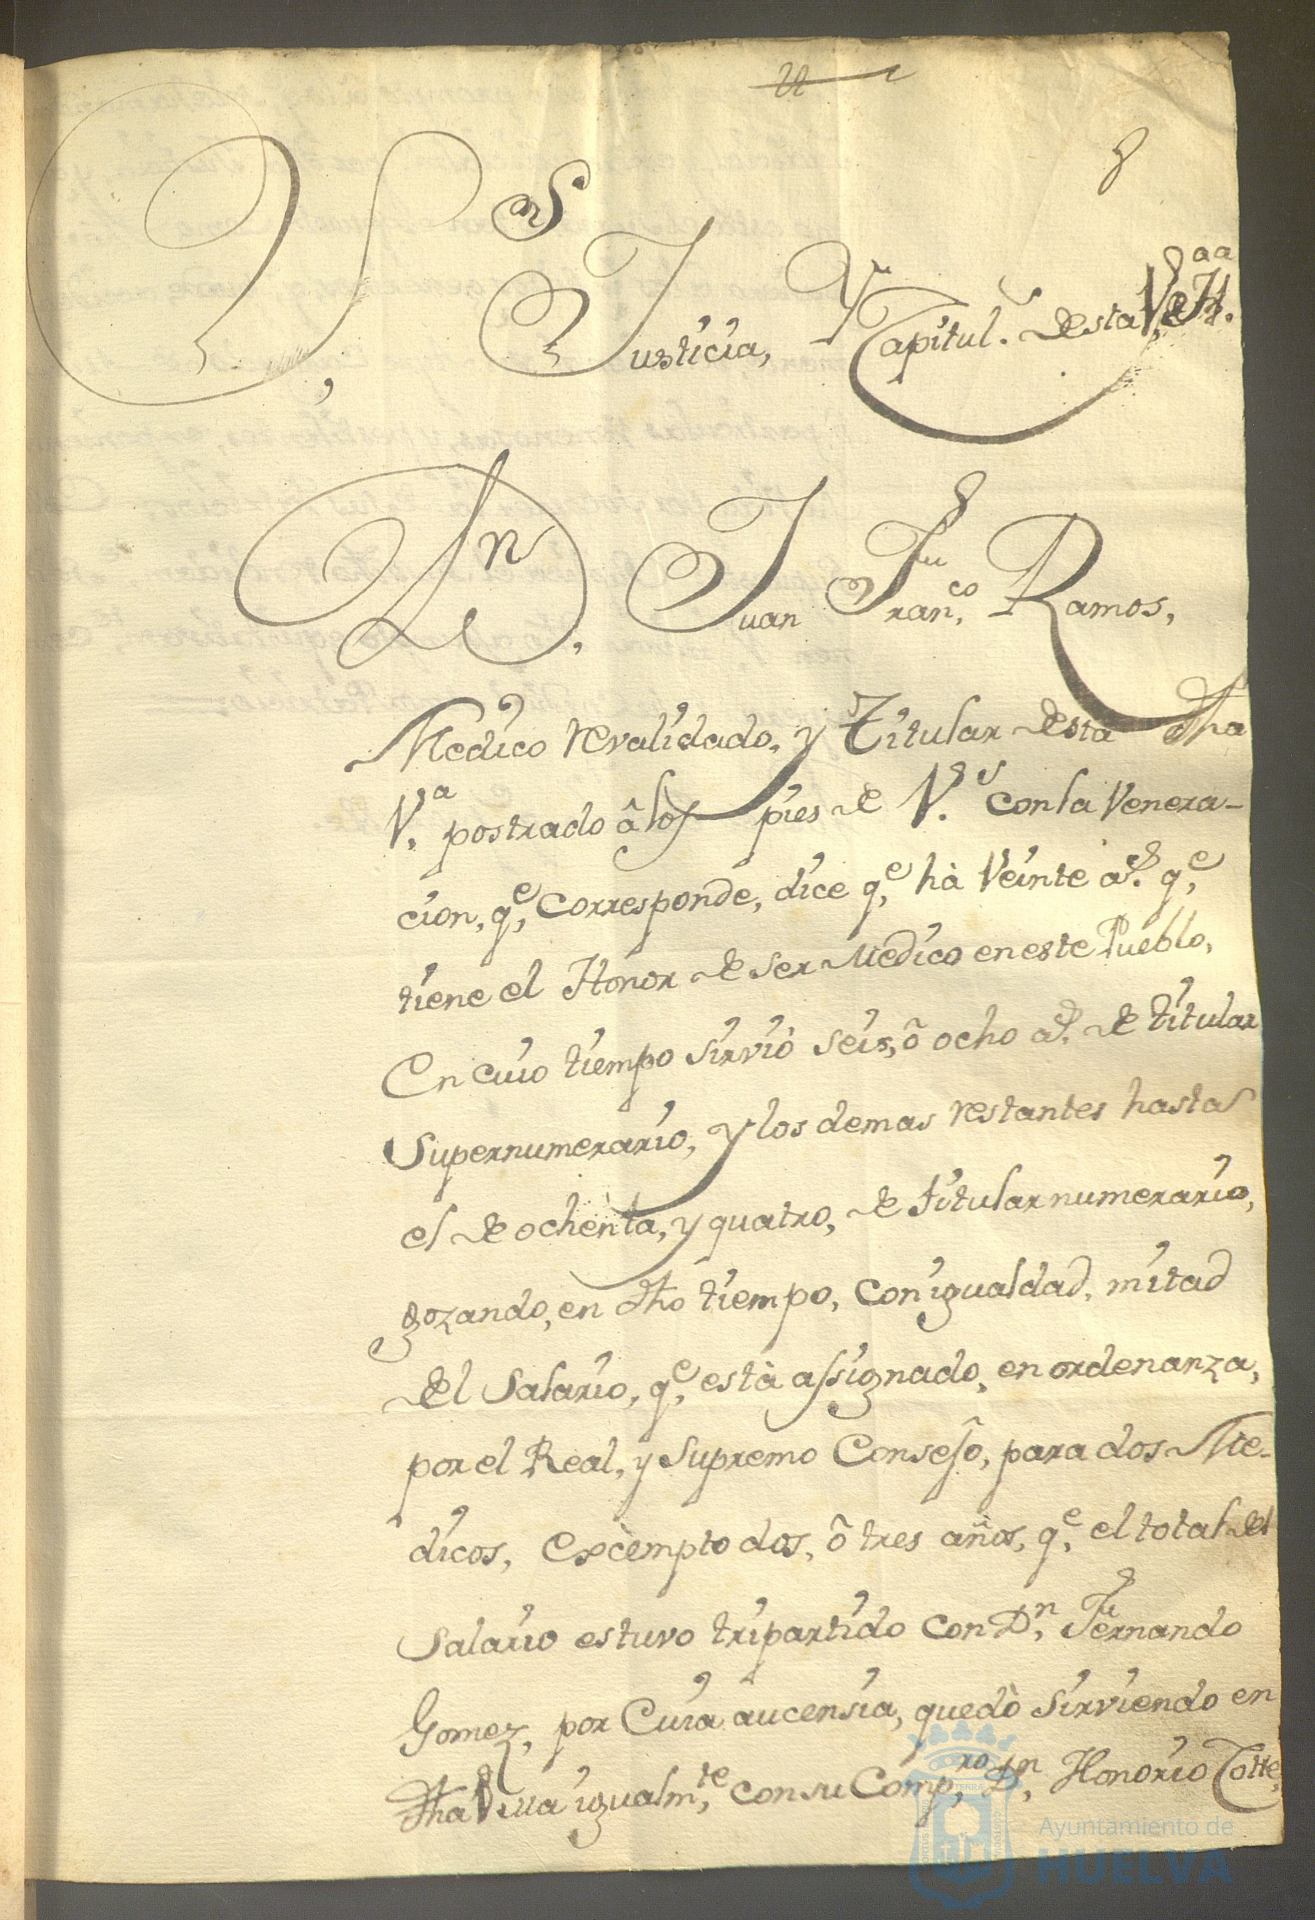 8
S.res Justicia, y Capitul.s desta V.a de H.a
D.n Juan Fran.co Ramos,
Medico revalidado, y Titular desta dha
V.a postrado â los pies de V.S con la Venera-
cion, q.e Corresponde, dice q.e hà Veinte a.s q.e
tiene el Honor de ser Medico en este Pueblo,
En cuio tiempo sirviò seis, ô ocho a.s de titular
Supernumerario, y los demas restantes hasta
el de ochenta, y quatro, de titular numerario,
gozando, en dho tiempo, con igualdad, mitad
del Salario, q.e està assignado, en ordenanza,
por el Real, y Supremo Consejo, para dos Me-
dicos, excèmpto dos, ô tres años, q.e el total del
Salario estuvo tripartido con D.n Fernando
Gomez, por Cuia aucensia, quedò Sirviendo en
dha Villa igualm.te con su Comp.ro D.n Honorio
Ayuntamiento de
HUELVA